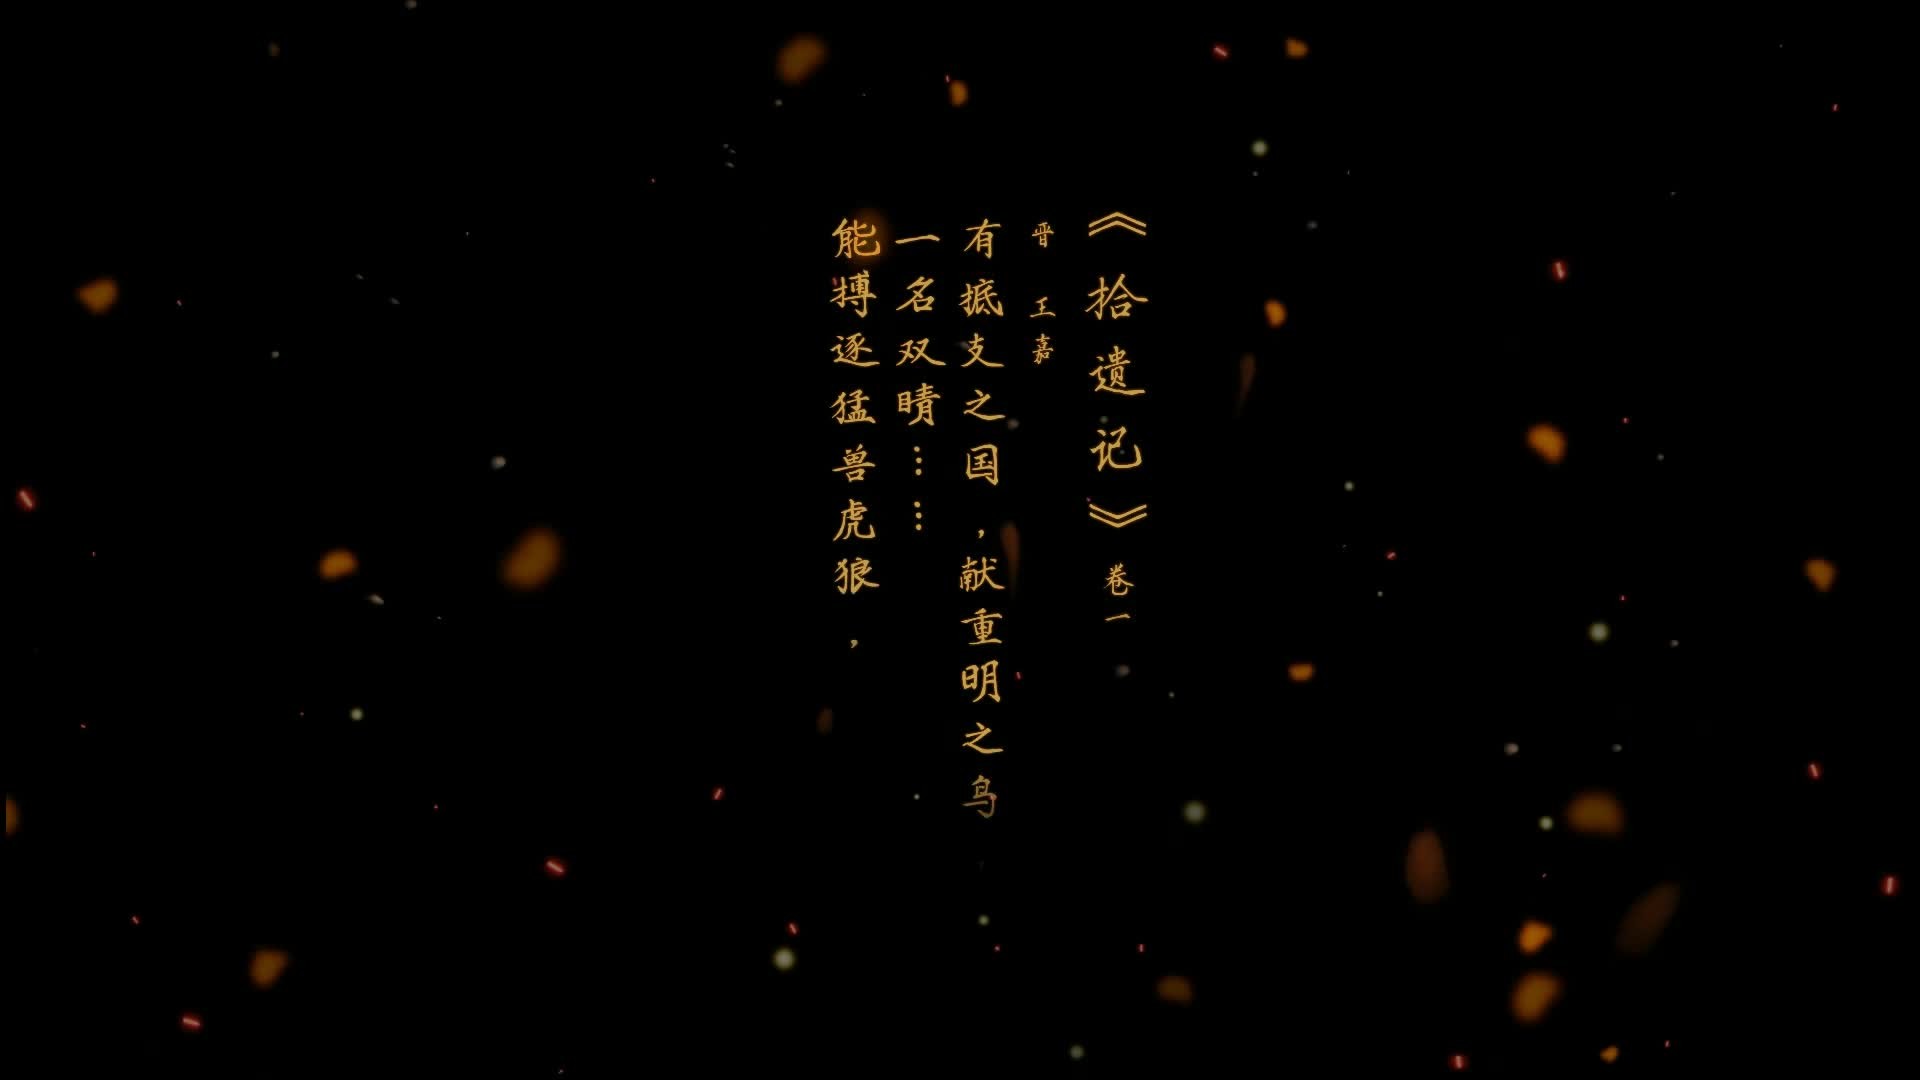 《拾遗记》卷一
晋 王嘉
有掋支之国，献重明之鸟
一名双睛……
能搏逐猛兽虎狼，